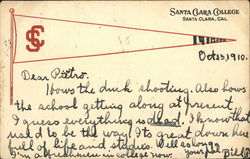 SANTA CLARA COLLEGE
SANTA CLARA, CAL.
SC
Oct 13, 1910.
Dear Pietro.
Hows the duck shooting. Also hows
the school getting along at present.
I guess everything is dead. I know that
used to be the way. Its great down here
full of life and studies. Well so long
I'm a freshman in college now. Your pal Bill